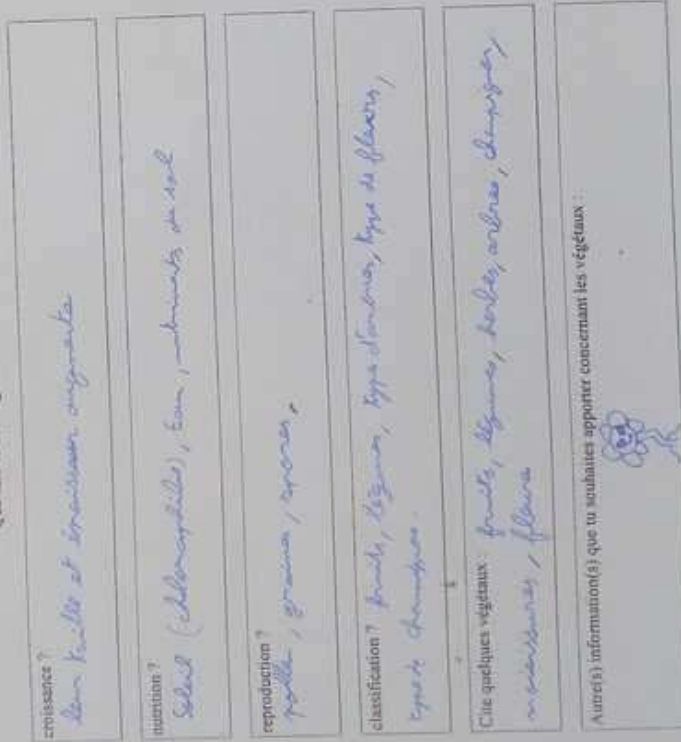 croissance ?
leur taille et épaisseur augmente
nutrition ?
Soleil (chlorophile), Eau, nutriments du sol
reproduction ?
pollen, graines, spores,
classification ? fruits, légumes, type d'arbres, type de fleurs,
type de champignons.
Cite quelques végétaux : fruits, légumes, herbes, arbres, champignons,
moisissures, fleurs
Autre(s) information(s) que tu souhaites apporter concernant les végétaux :